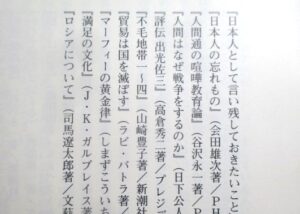 『日本人として言い残しておきたいこと
『日本人の忘れもの』（会田雄次著／PH
『人間通の喧嘩教育論』（谷沢永一著／P
『人間はなぜ戦争をするのか』（日下公人
『評伝 出光佐三』（高倉秀二著／プレジデ
『不毛地帯 一～四』（山崎豊子著／新潮社
『貿易は国を滅ぼす』（ラビ・バトラ著／
『マーフィーの黄金律』（しまずこういち
『満足の文化』（J・K・ガルブレイス著
『ロシアについて』（司馬遼太郎著／文藝